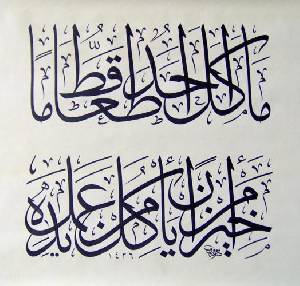 ما أكل احد طعاما قط
خيرا من أن يأكل من عمل يده
١٤٢٦